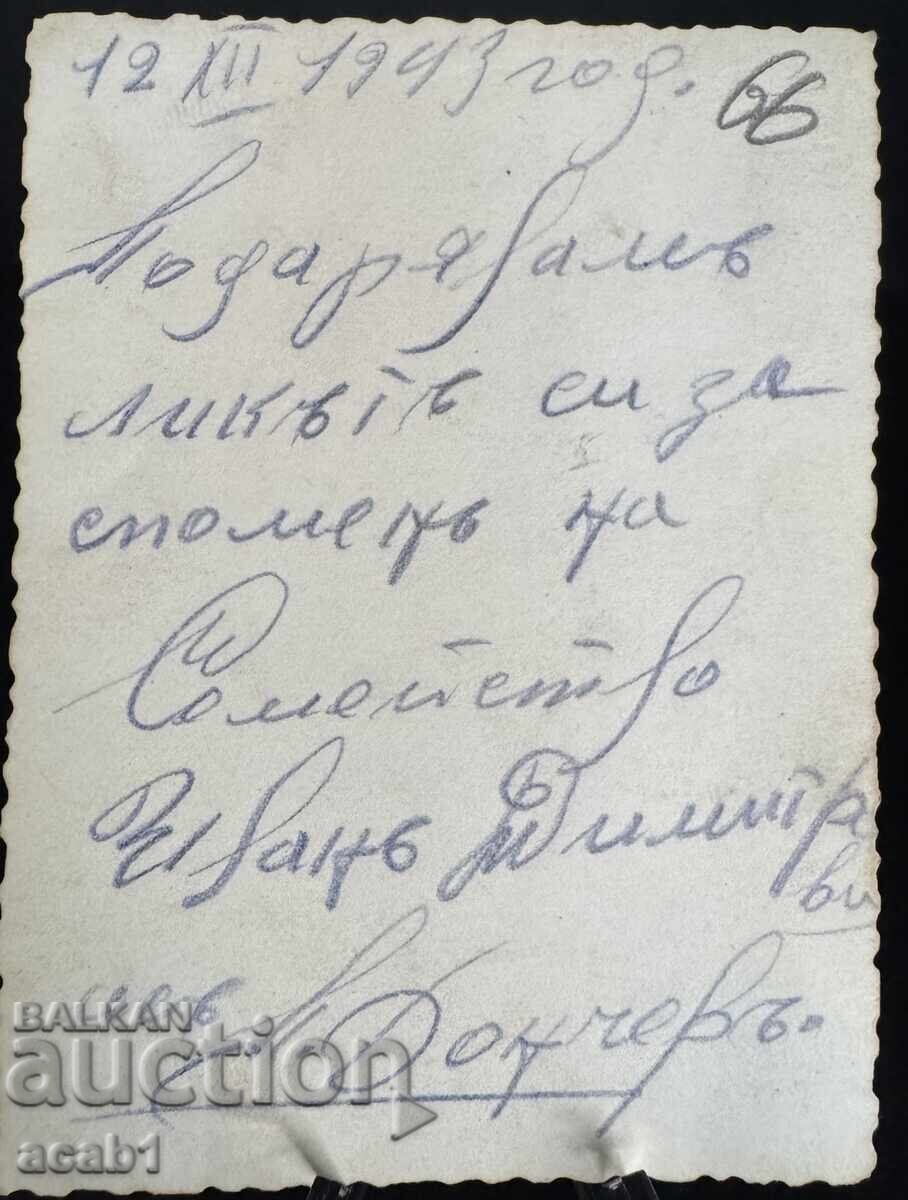 12 XII 1943 год.
66
Подарявамъ
ликътъ си за
споменъ на
Семейство
Иванъ Димитро
ви
Дончевъ.
BALKAN
auction
acab1